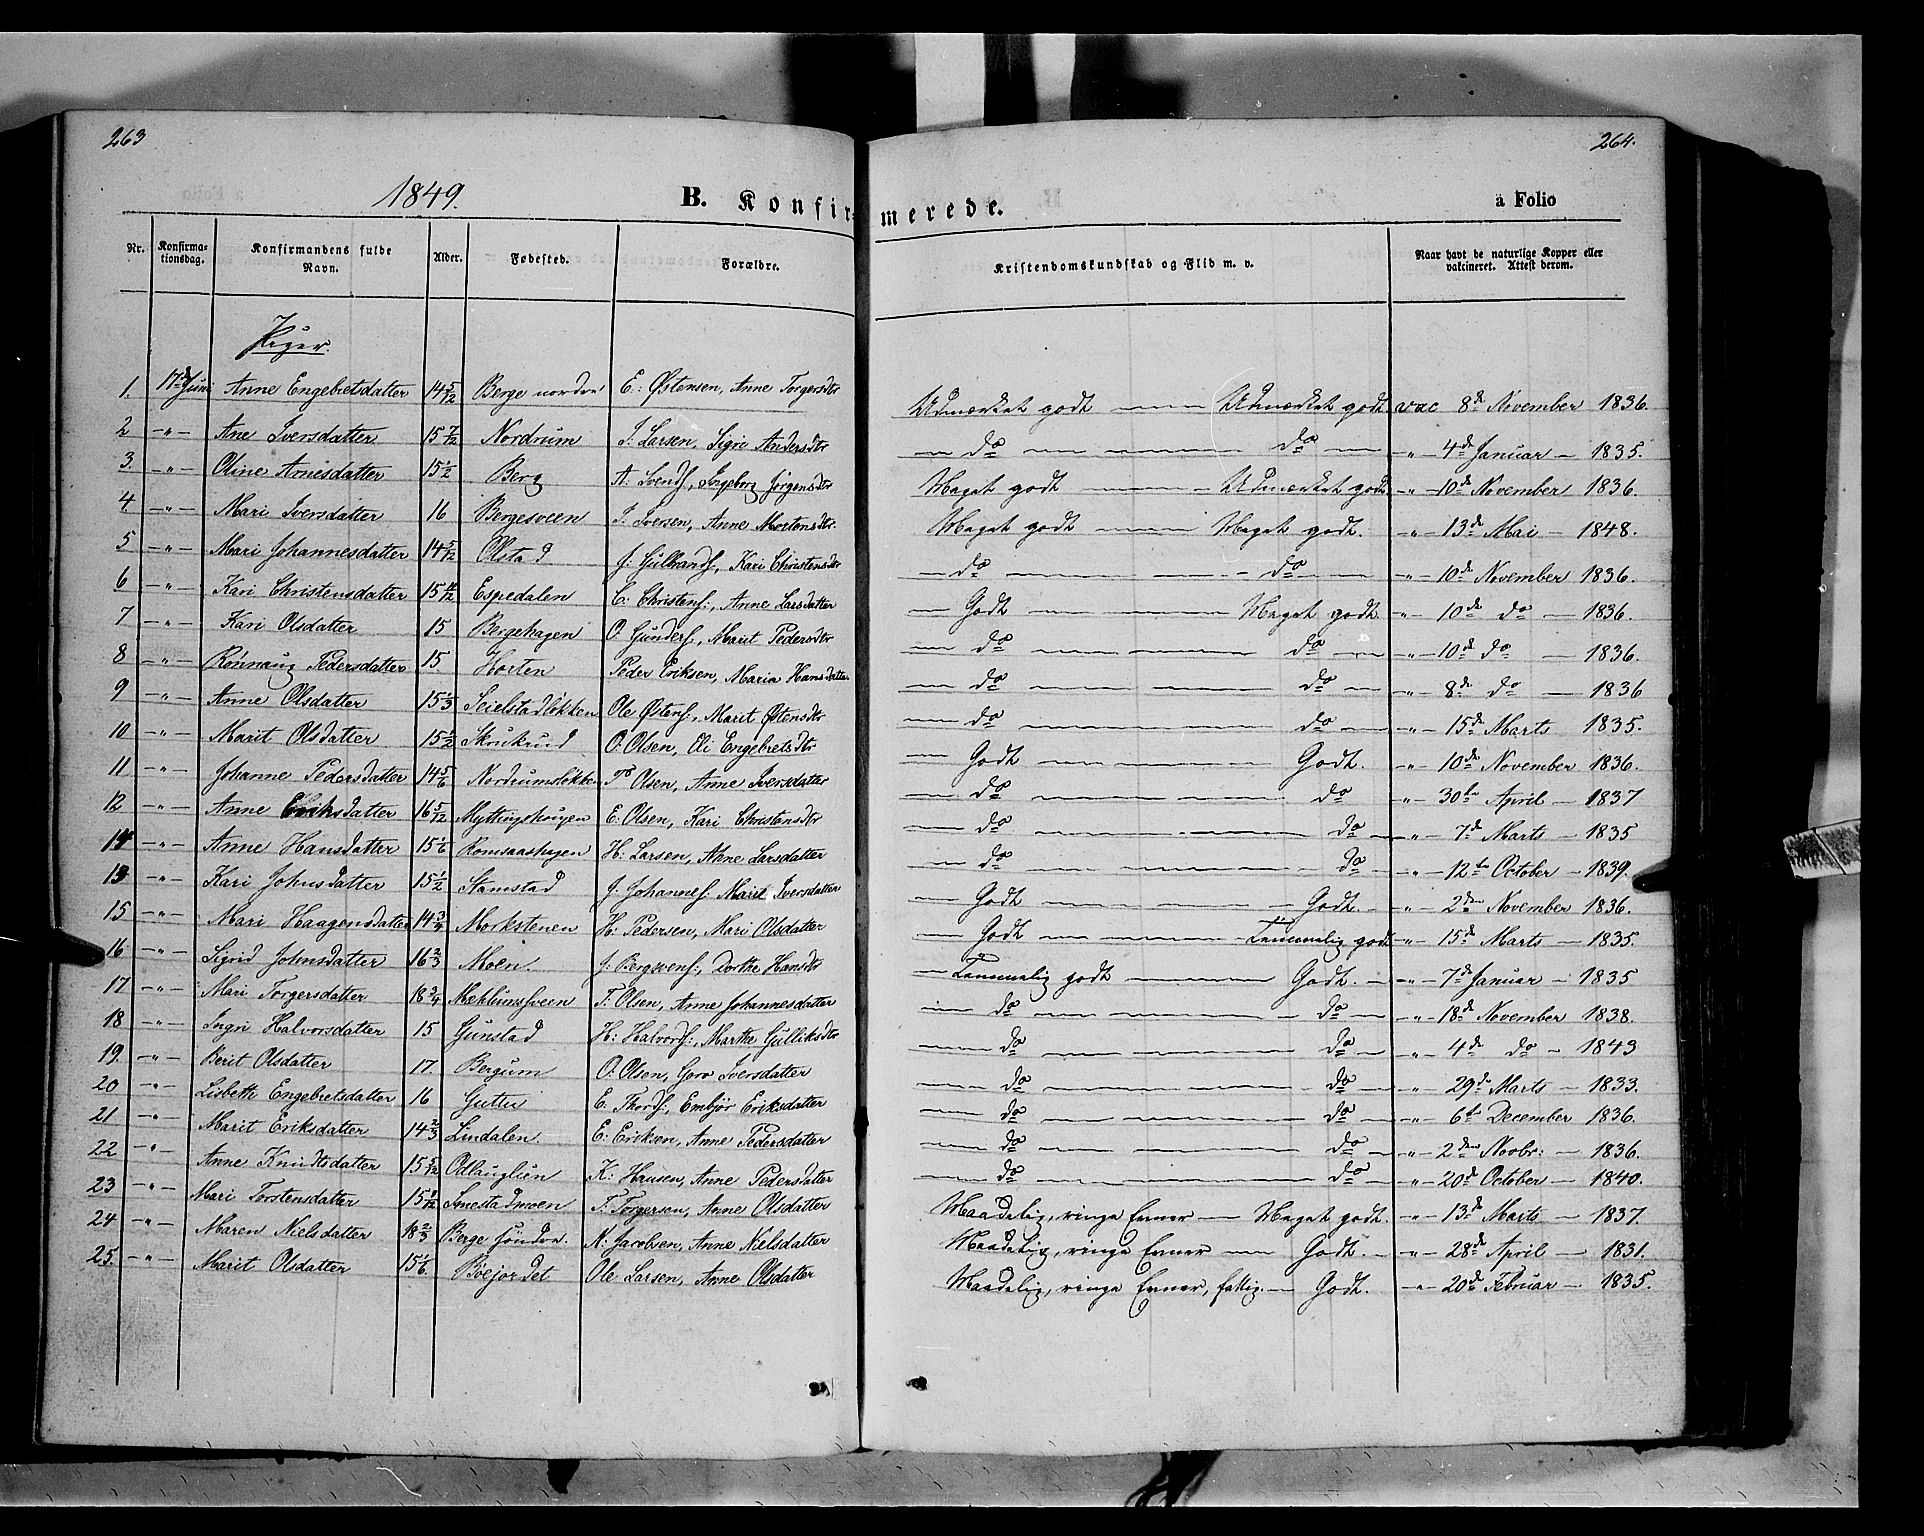 263
264.
1849.
B. Konfirmerede.
à Folio
Nr. Konfirmationsdag. Konfirmandens fulde Navn. Alder. Fødested. Forældre. Kristendomskundskab og Flid m. v. Naar havt de naturlige Kopper eller vakcineret. Attest derom.
Piger.
1. 17de Juni Anne Engebretsdatter 14 5/12 Berge nordre E: Østensen, Anne Torgersdtr Udmærket godt — Udmærket godt vac 8de November 1836.
2 -"- Ane Iversdatter 15 7/12 Nordrum I: Larsen, Sigri Andersdtr — do — do — -"- 4de Januar — 1835.
3. -"- Oline Arnesdatter 15 1/2 Berg A: Svends:, Ingeborg Jørgensdtr Meget godt — Udmærket godt -"- 10de November 1836.
4 -"- Mari Iversdatter 16 Bergesveen I: Iversen, Anne Mortensdtr. Meget godt — Meget godt. -"- 13de Mai — 1848.
5 -"- Mari Johannesdatter 14 5/12 Olstad J: Gulbrands:, Kari Christensdtr — do — do — -"- 10de November 1836.
6 -"- Kari Christensdatter 15 11/12 Espedalen C: Christens:, Anne Larsdatter — Godt — Meget godt. -"- 10de do — 1836.
7 -"- Kari Olsdatter 15 Bergehagen O: Gunders:, Marit Pedersdtr — do — do — -"- 10de do — 1836.
8 -"- Rønnaug Pedersdatter 15. Horten Peder Eriksen, Maria Hansdatter — do — do — -"- 8de do — 1836
9 -"- Anne Olsdatter 15 1/3 Seielstadløkken Ole Østens:, Marit Østensdtr — do — do — -"- 15de Marts 1835.
10 -"- Marit Olsdatter 15 1/2 Skrukrud O: Olsen, Eli Engebretsdtr — Godt — Godt. -"- 10de November 1836.
11 -"- Johanne Pedersdatter 14 5/6 Nordrumsløkken P Olsen, Anne Iversdatter — do — do -"- 30te April — 1837
12 -"- Anne Eriksdatter 16 5/12 Myttingshougen E: Olsen, Kari Christensdtr — do — do — -"- 7de Marts — 1835
14 -"- Anne Hansdatter 15 1/6 Romsaashagen H: Larsen, Anne Larsdatter — do — do — -"- 12te October — 1839.
13 -"- Kari Johnsdatter 15 1/2 Stamstad J: Johannes: Marit Iversdatter — Godt — Godt — -"- 2den November 1836.
15 -"- Mari Haagensdatter 14 3/4 Morkstenen H: Pedersen, Mari Olsdatter — Godt — Temmelig godt -"- 15de Marts — 1835.
16 -"- Sigrid Johnsdatter 16 2/3 Moen. J: Bergsvens:, Dorthe Hansdtr — Temmelig godt — Godt. — -"- 7de Januar — 1835
17 -"- Mari Torgersdatter 18 3/4 Mehlumsveen T: Olsen, Anne Johannesdatter — do — do — -"- 18de November — 1838.
18 -"- Ingri Halvorsdatter 15 Gunstad H: Halvors:, Marthe Gulliksdtr — do — do — -"- 4de do — 1843
19. -"- Berit Olsdatter 17. Bergum O: Olsen, Goro Iversdatter — do — do — -"- 29de Marts — 1833.
20 -"- Lisbeth Engebretsdatter 16 Guttu E: Thords:, Embjør Eriksdatter — do — do — -"- 6te December — 1836.
21 -"- Marit Eriksdatter 14 2/3 Lindalen. E: Eriksen, Anne Pedersdatter — do — do — -"- 2den Novbr: — 1836.
22 -"- Anne Knudtsdatter 15 5/12 Odlauglien K: Hansen, Anne Pedersdatter — do — do — -"- 20de October — 1840.
23 -"- Mari Torstensdatter 15 1/12 Smestadmoen T: Torgersen, Anne Olsdatter Maadelig, ringe Evner — Meget godt. -"- 13de Marts — 1837.
24 -"- Maren Nielsdatter 18 2/3 Berge søndre. N: Jacobsen, Anne Nielsdatter Maadelig, ringe Evner — Godt. — -"- 28de April — 1831.
25. -"- Marit Olsdatter 15 1/6 Bøejordet Ole Larsen, Anne Olsdatter Maadelig, ringe Evner, fattig. — Godt. -"- 20de Februar — 1835.